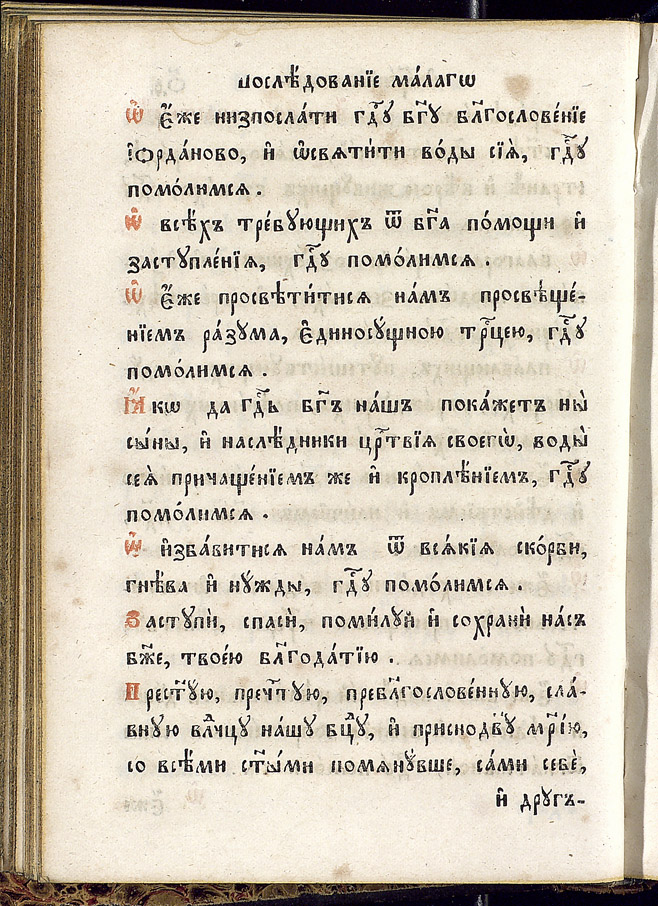 послѣ́дованїе ма́лагѡ
Ѽ є҆́же низпосла́ти гдⷭ҇ꙋ бг҃ꙋ блгⷭ҇ослове́нїе
і҆ѻрда́ново, и҆ ѡ҆свѧти́ти во́ды сїѧ̑, гдⷭ҇ꙋ
помо́лимсѧ.
Ѽ всѣ́хъ тре́бꙋющихъ ѿ бг҃а по́мощи и҆
застꙋпле́нїѧ, гдⷭ҇ꙋ помо́лимсѧ.
Ѽ є҆́же просвѣти́тисѧ на́мъ просвѣще́-
нїемъ ра́зꙋма, є҆диносꙋ́щною трⷪ҇цею, гдⷭ҇ꙋ
помо́лимсѧ.
Ꙗ҆́кѡ да гдⷭ҇ь бг҃ъ на́шъ пока́жетъ ны̀
сы́ны, и҆ наслѣ́дники црⷭ҇твїѧ своегѡ̀, воды̀
сеѧ̀ причаще́нїемъ же и҆ кропле́нїемъ, гдⷭ҇ꙋ
помо́лимсѧ.
Ѽ и҆зба́витисѧ на́мъ ѿ всѧ́кїѧ ско́рби,
гнѣ́ва и҆ нꙋ́жды, гдⷭ҇ꙋ помо́лимсѧ.
Застꙋпѝ, спасѝ, поми́лꙋй и҆ сохранѝ на́съ
бж҃е, твое́ю блгⷣода́тїю.
Прест҃ꙋ́ю, пречⷭ҇тꙋю, преблгⷭ҇ослове́ннꙋю, сла́-
внꙋю влⷣчцꙋ на́шꙋ бцⷣꙋ, и҆ приснодв҃ꙋ мр҃і́ю,
со всѣ́ми ст҃ы́ми помѧнꙋ́вше, са́ми себѐ,
и҆ дрꙋгъ-